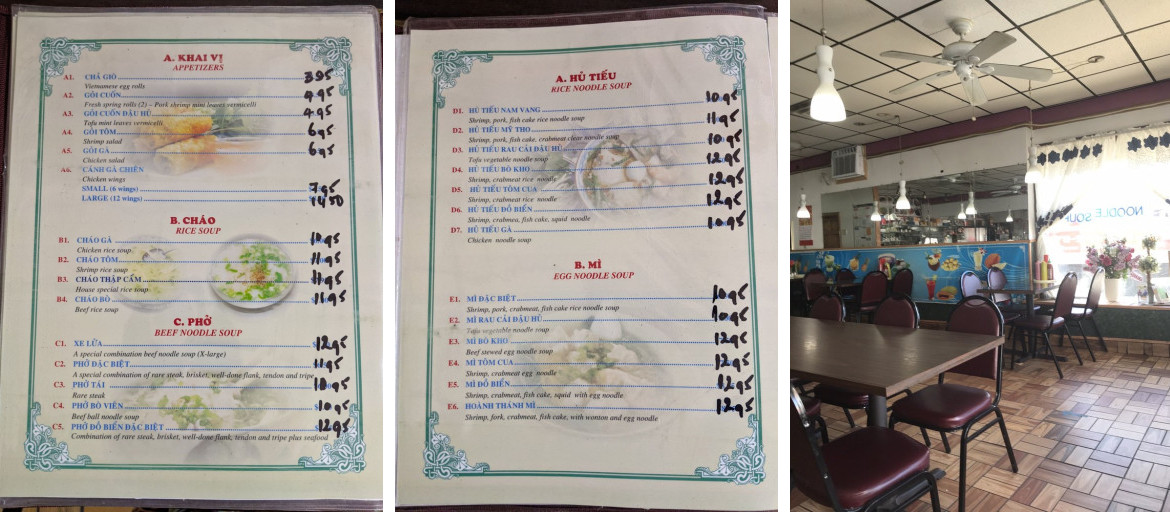 A. KHAI VỊ
APPETIZERS
A1. CHẢ GIÒ 3.95
Vietnamese egg rolls
A2. GỎI CUỐN 4.95
Fresh spring rolls (2) – Pork shrimp mint leaves vermicelli
A3. GỎI CUỐN ĐẬU HỦ 4.95
Tofu mint leaves vermicelli
A4. GỎI TÔM 6.95
Shrimp salad
A5. GỎI GÀ 6.95
Chicken salad
A6. CÁNH GÀ CHIÊN
Chicken wings
SMALL (6 wings) 7.95
LARGE (12 wings) 14.50
B. CHÁO
RICE SOUP
B1. CHÁO GÀ 10.95
Chicken rice soup
B2. CHÁO TÔM 11.95
Shrimp rice soup
B3. CHÁO THẬP CẨM 11.95
House special rice soup
B4. CHÁO BÒ 11.95
Beef rice soup
C. PHỞ
BEEF NOODLE SOUP
C1. XE LỬA 12.95
A special combination beef noodle soup (X-large)
C2. PHỞ ĐẶC BIỆT 11.95
A special combination of rare steak, brisket, well-done flank, tendon and tripe
C3. PHỞ TÁI 10.95
Rare steak
C4. PHỞ BÒ VIÊN 10.95
Beef ball noodle soup
C5. PHỞ ĐỒ BIỂN ĐẶC BIỆT 12.95
Combination of rare steak, brisket, well-done flank, tendon and tripe plus seafood
A. HỦ TIẾU
RICE NOODLE SOUP
D1. HỦ TIẾU NAM VANG 10.95
Shrimp, pork, fish cake rice noodle soup
D2. HỦ TIẾU MỸ THO 11.95
Shrimp, pork, fish cake, crabmeat clear noodle soup
D3. HỦ TIẾU RAU CẢI ĐẬU HỦ 10.95
Tofu vegetable noodle soup
D4. HỦ TIẾU BÒ KHO 12.95
Shrimp, crabmeat rice noodle
D5. HỦ TIẾU TÔM CUA 12.95
Shrimp, crabmeat rice noodle
D6. HỦ TIẾU ĐỒ BIỂN 12.95
Shrimp, crabmea, fish cake, squid noodle
D7. HỦ TIẾU GÀ 10.95
Chicken noodle soup
B. MÌ
EGG NOODLE SOUP
E1. MÌ ĐẶC BIỆT 10.95
Shrimp, pork, crabmeat, fish cake rice noodle soup
E2. MÌ RAU CẢI ĐẬU HỦ 10.95
Tofu vegetable noodle soup
E3. MÌ BÒ KHO 12.95
Beef stewed egg noodle soup
E4. MÌ TÔM CUA 12.95
Shrimp, crabmeat egg noodle
E5. MÌ ĐỒ BIỂN 12.95
Shrimp, crabmeat, fish cake, squid with egg noodle
E6. HOÀNH THÁNH MÌ 12.95
Shrimp, fork, crabmeat, fish cake, with wonton and egg noodle
NOODLE SOUP